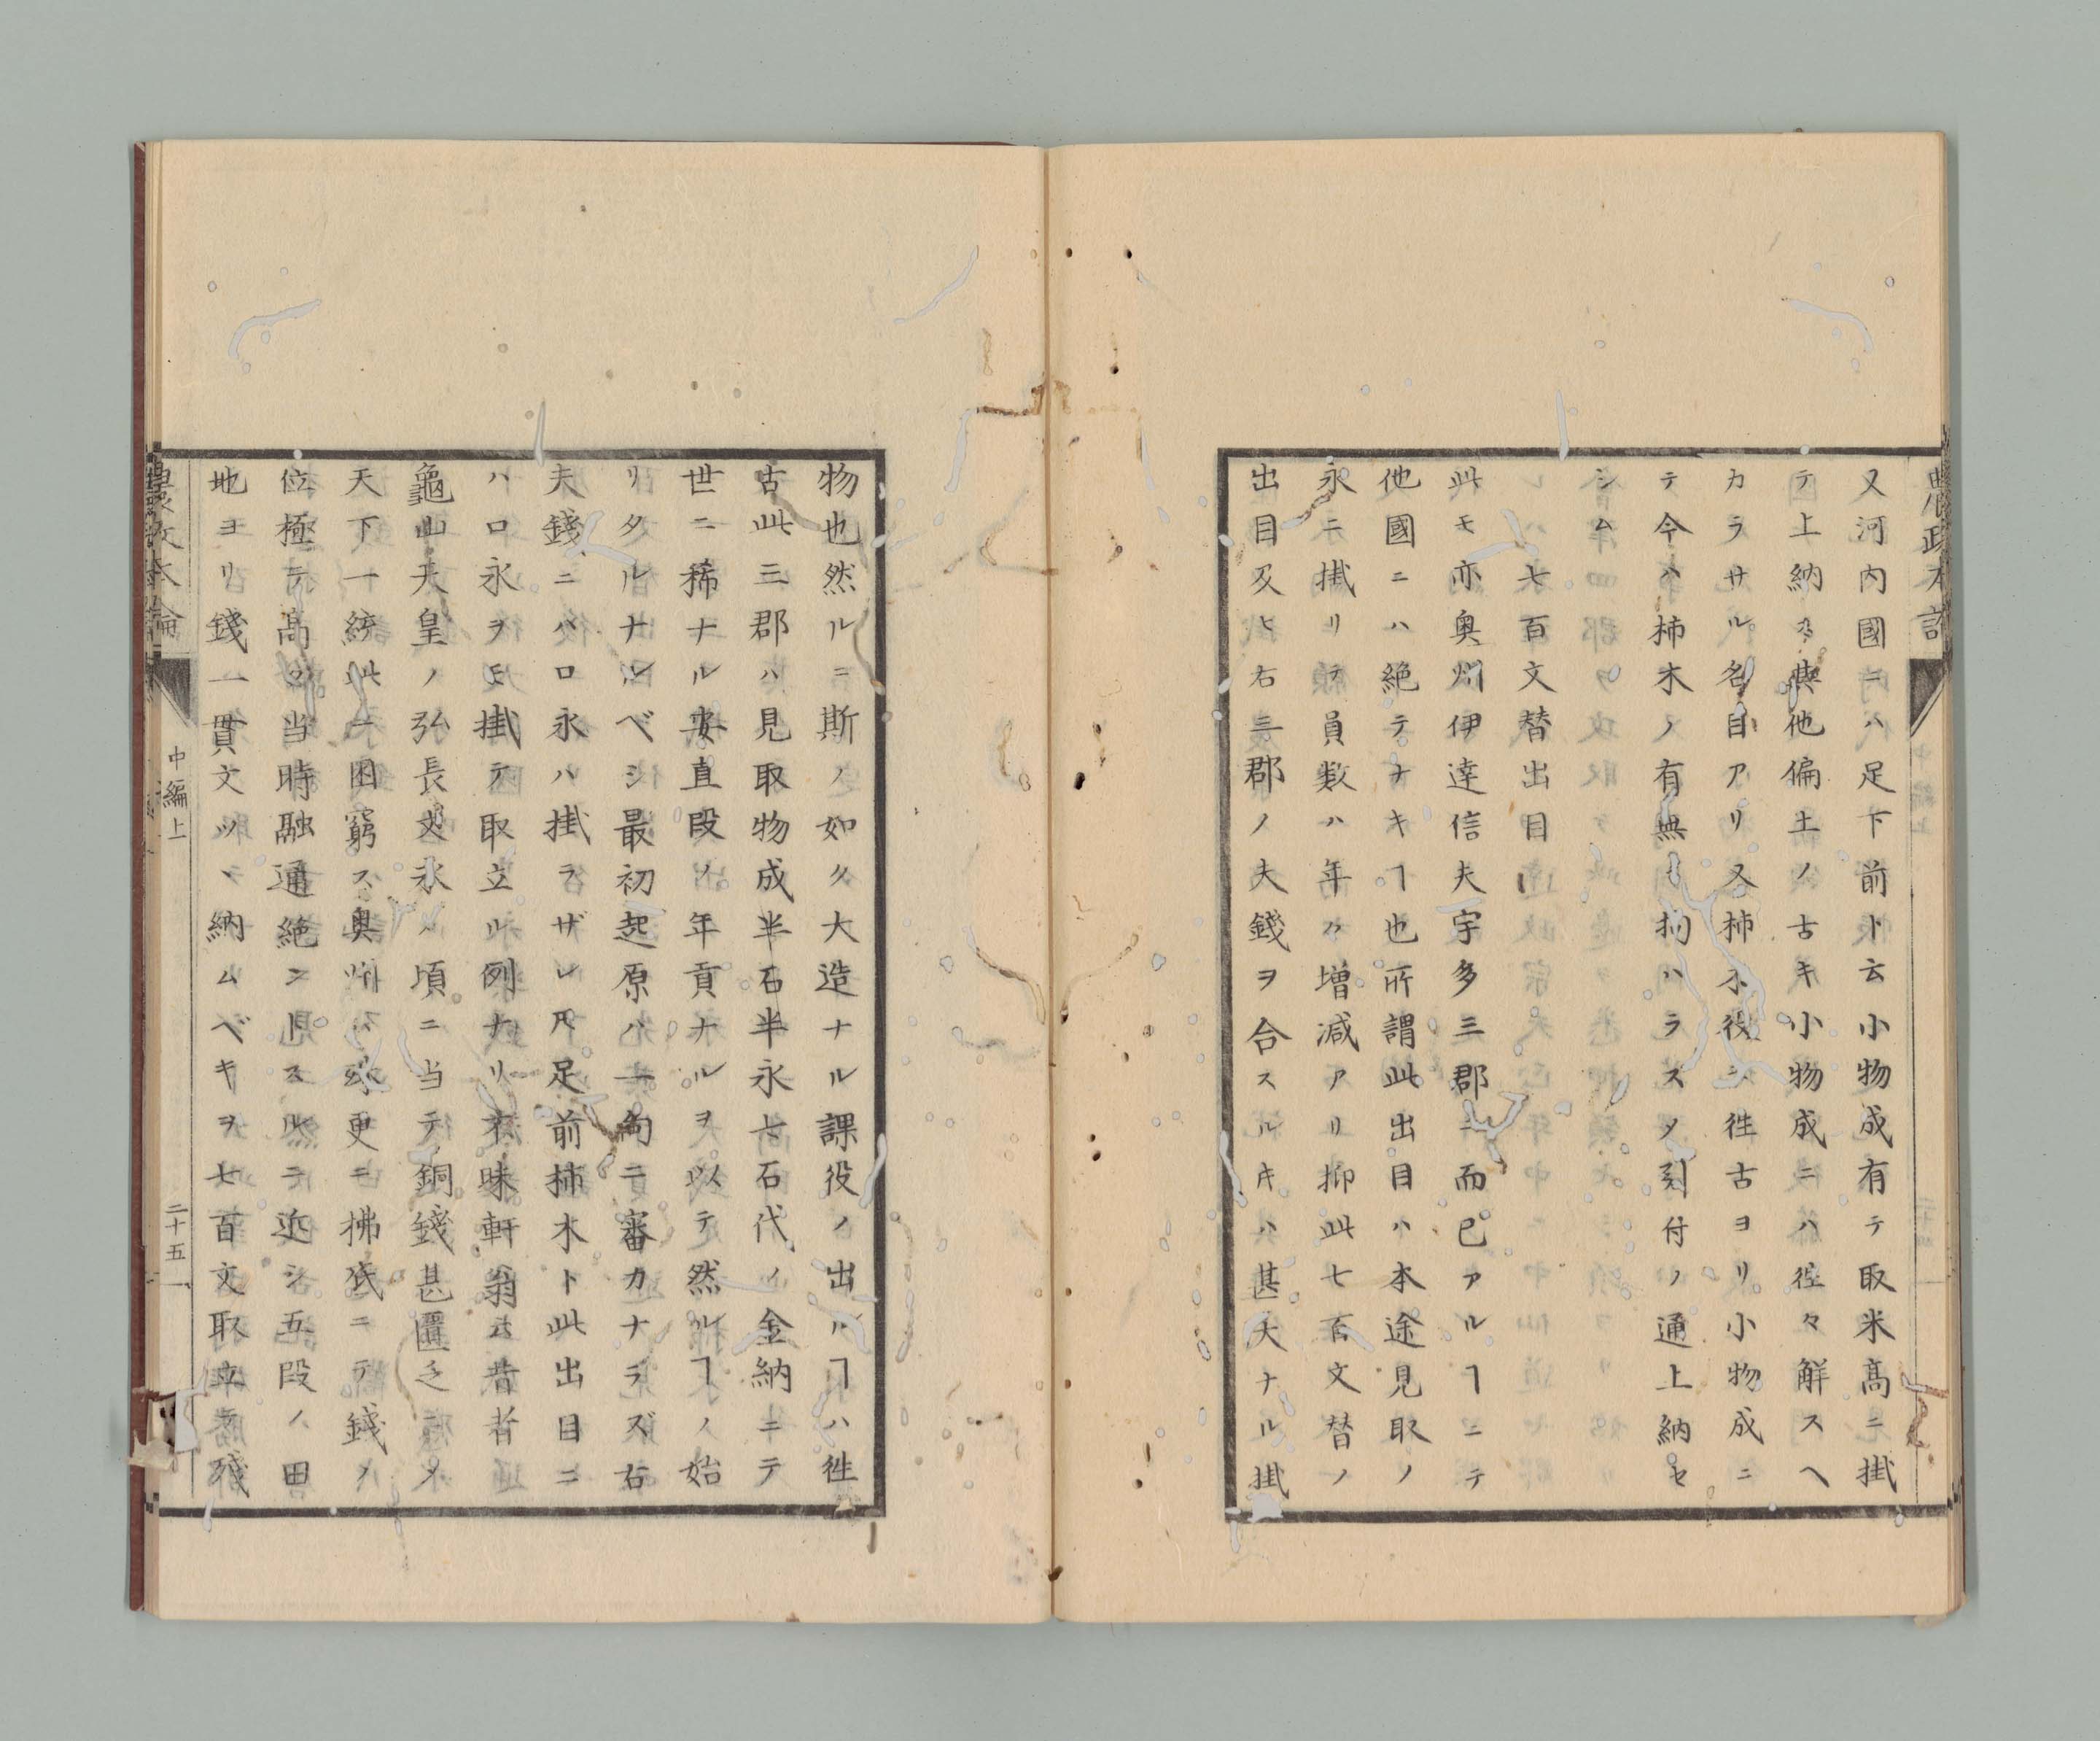 又河内國ニハ足下前ト云小物成有テ取米髙ニ掛
テ上納ス其他偏土ノ古キ小物成ニハ徃々解スヘ
カラサル名目アリ又柿木役ハ徃古ヨリ小物成ニ
テ今ハ柿木ノ有無ニ拘ハラスタヽ割付ノ通上納セ
シム
七百文替出目
此モ亦奥州伊達信夫宇多三郡ニ而已アルヿニテ
他國ニハ絶テナキヿ也所謂此出目ハ本途見取ノ
永ニ掛リテ員数ハ年々増減アリ抑此七百文替ノ
出目及ヒ右三郡ノ夫錢ヲ合スルキハ甚大ナル掛
物也然ルニ斯ノ如ク大造ナル課役ノ出ルヿハ徃
古此三郡ハ見取物成半石半永七石代ノ金納ニテ
世ニ稀ナル安直段ノ年貢ナルヲ以テ然ルヿノ始
リタルナルベシ最初起原ハ一向ニ審カナラズ右
夫錢ニハ口永ハ掛ラザレ𪜈足前柿木ト此出目ニ
ハ口永ヲモ掛テ取立ル例ナリ玄昧軒翁云昔者
龜山天皇ノ弘長文永ノ頃ニ当テ銅錢甚匱乏ニメ
天下一統此ニ困窮ス奥州ハ殊更ニ拂底ニテ錢ノ
位極テ髙ク当時融通絶ントスルニ近シ五段ノ田
地ヨリ錢一貫文ツヽ納ムベキヲ七百文取立テ残
農政本論
中編上
二十五